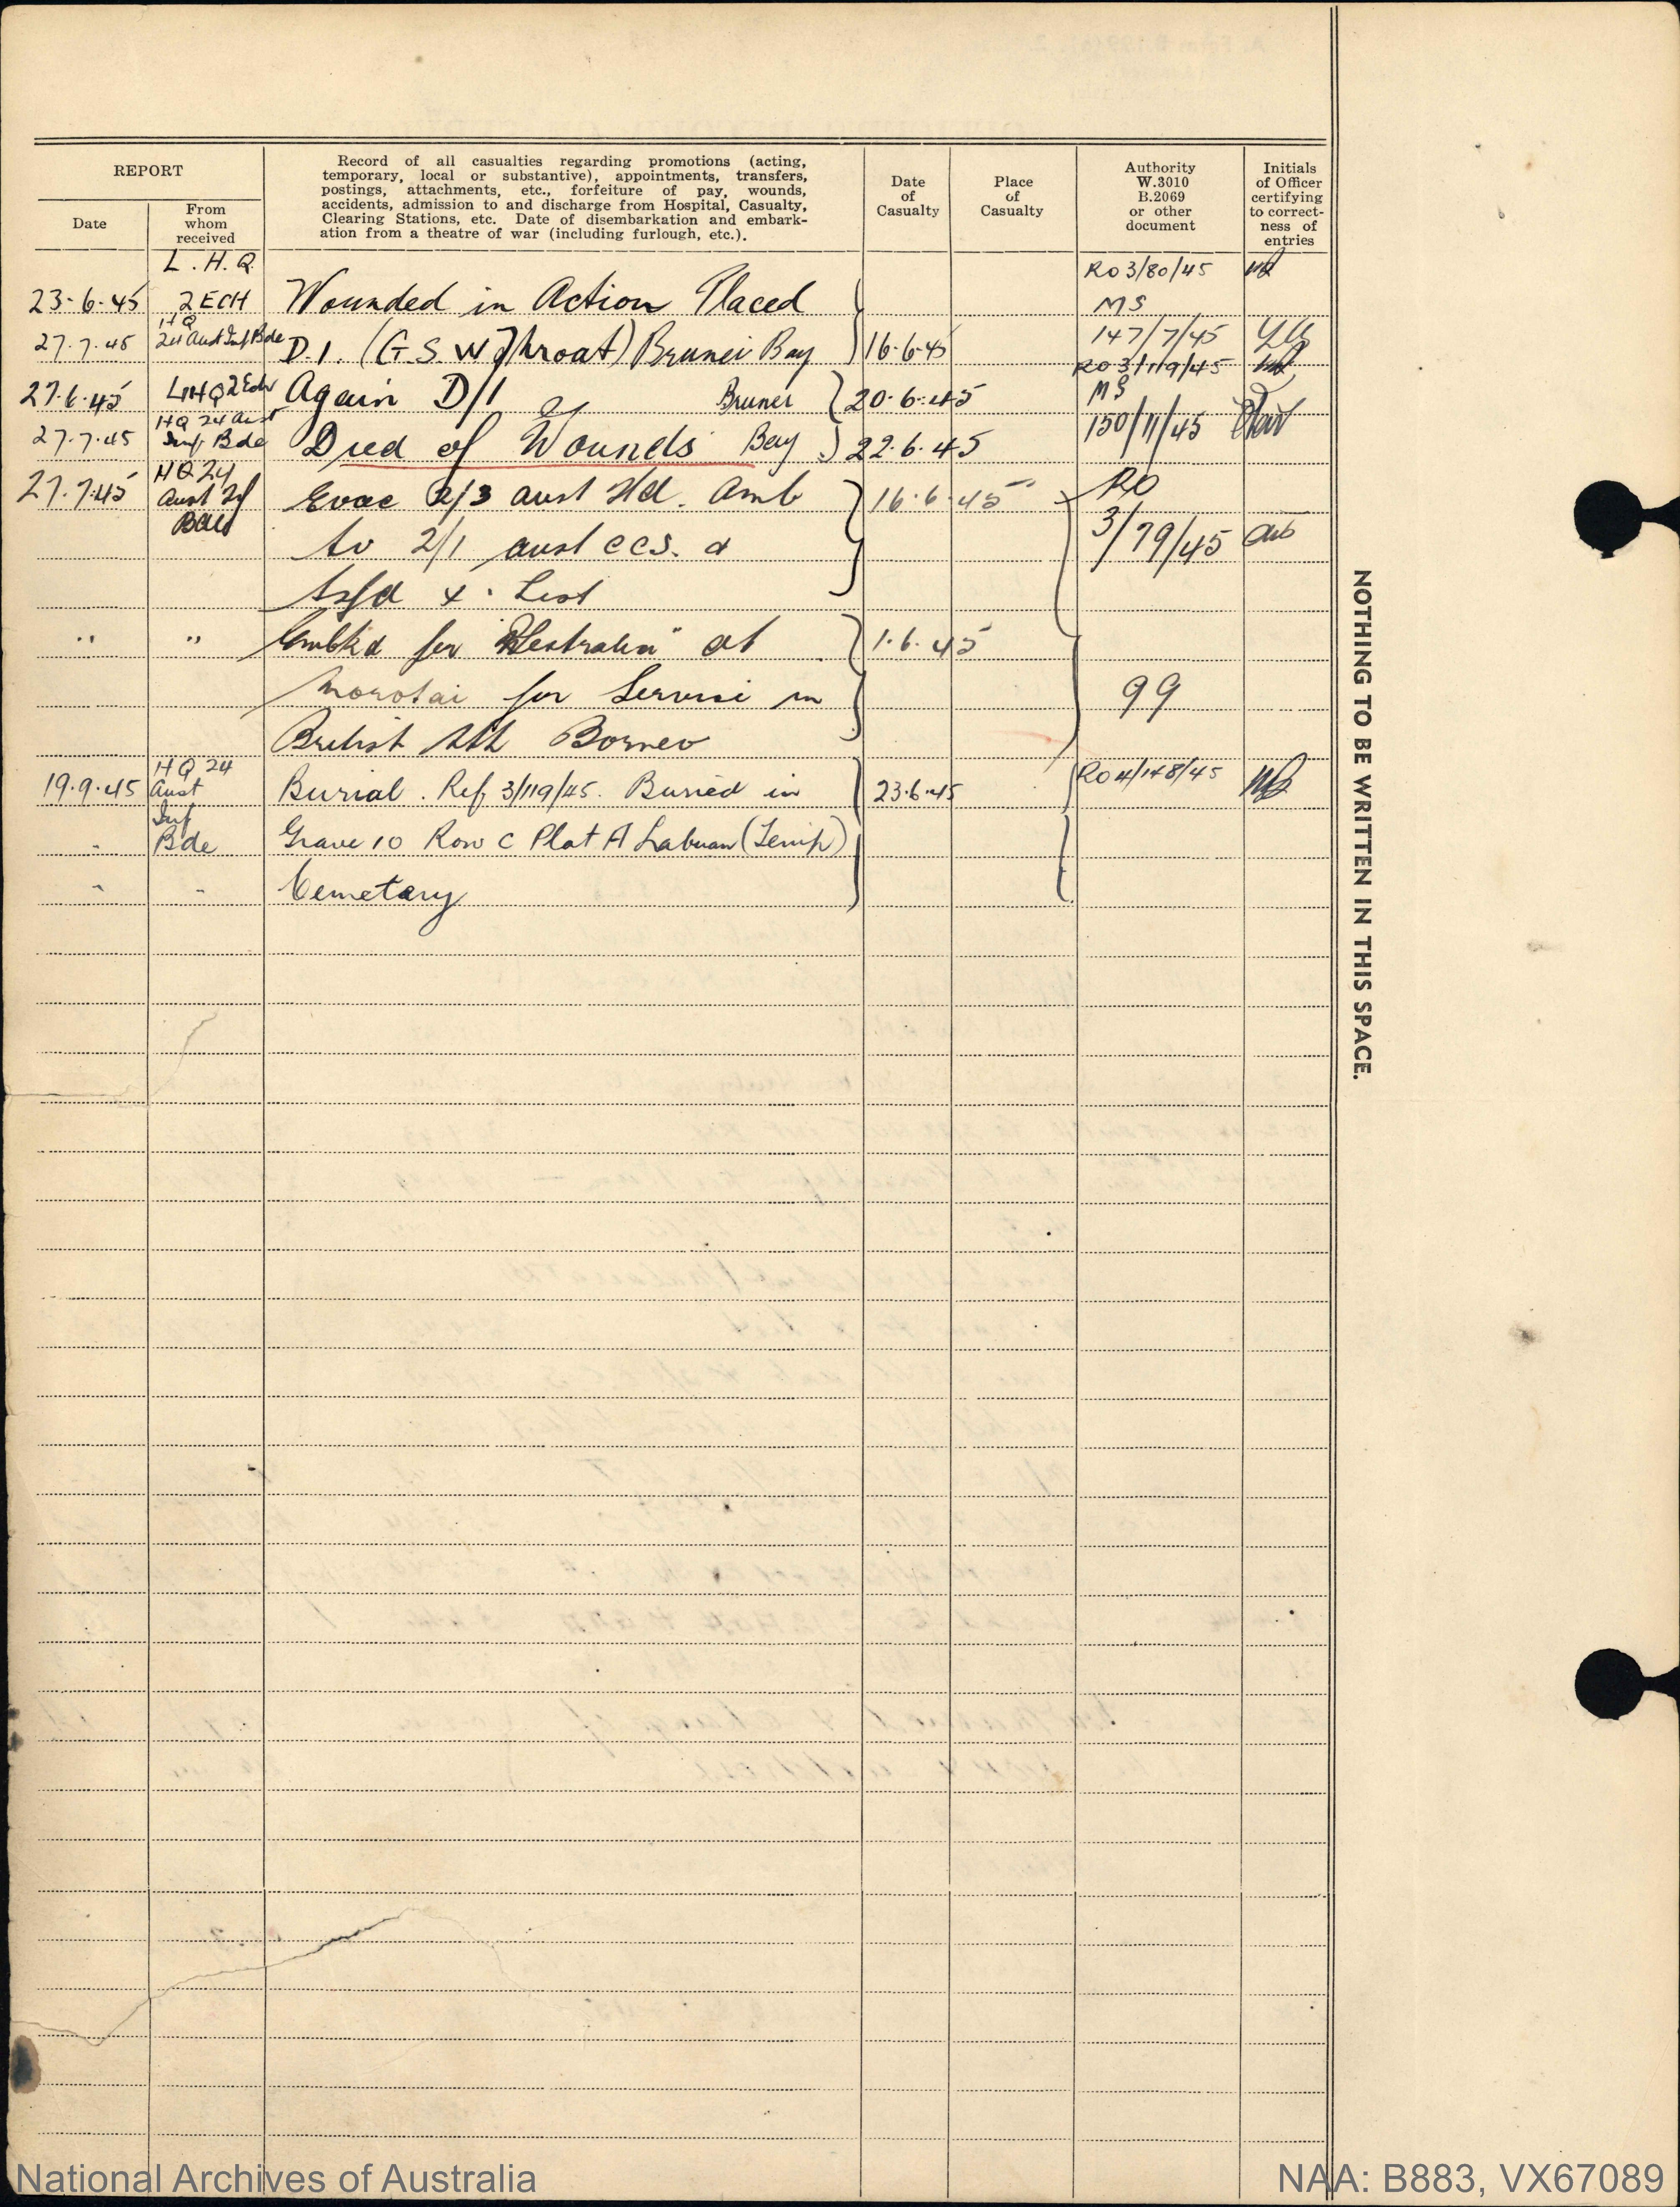 REPORT
Date
From
whom
received
Record of all casualties regarding promotions (acting,
temporary, local or substantive), appointments, transfers,
postings, attachments, etc., forfeiture of pay, wounds,
accidents, admission to and discharge from Hospital, Casualty,
Clearing Stations, etc. Date of disembarkation and embark-
ation from a theatre of war (including furlough, etc.).
Date
of
Casualty
Place
of
Casualty
Authority
W.3010
B.2069
or other
document
Initials
of Officer
certifying
to correct-
ness of
entries
L.H.Q. RO3/80/45
23-6-45 2 ECH Wounded in Action Placed MS
27.7.45 HQ 24 Aust Inf Bde D.I. (G.S.W Throat) Brunei Bay 16.6.45 147/7/45
RO3/119/45
27.6.45 LHQ 2 Ech Again D/I Brunei 20.6.45 MS
27.7.45 HQ 24 Aust Inf Bde Died of Wounds Bay 22.6.45 150/11/45
27.7.45 HQ 24 Aust Inf Bde Evac 2/3 Aust Fld. Amb 16.6.45 RO
to 2/1 Aust CCS. & 3/79/45
tsfd X. List
" " Embkd per "Westralia" at 1.6.45
Morotai for Service in 99
British Nth Borneo
19.9.45 HQ 24 Aust Inf Bde Burial. Ref 3/119/45. Buried in 23.6.45 RO4/148/45
Grave 10 Row C Plot A Labuan (Temp)
Cemetary
NOTHING TO BE WRITTEN IN THIS SPACE.
National Archives of Australia
NAA: B883, VX67089